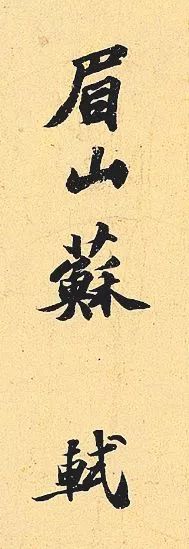 眉山蘇軾